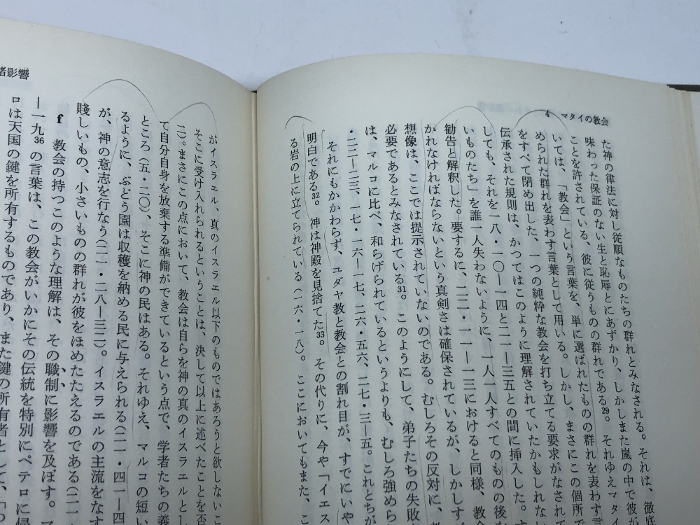 4 マタイの教会
た神の律法に対し従順なものたちの群れとみなされる。それは、徹
味わった保証のない生と恥辱とにあずかり、しかしまた嵐の中で彼が
ことを許されている、彼に従うものの群れである29。それゆえマタ
いては、「教会」という言葉を、単に選ばれたものの群れを表わす
められた群れを表わす言葉として用いる。しかし、まさにこの個所で
をすべて閉め出した、一つの純粋な教会を打ち立てる要求がなされて
伝承された規則は、かつてはこのように理解されていたかもしれな
しても、それを一八・一〇―一四と二一―三五との間に挿入した。す
いものたち」を誰一人失わないように、一人一人すべてのものの後を
勧告と解釈した。要するに、二二・一一―一三におけると同様、教会
かれなければならないという真剣さは確保されているが、しかしす
必要であるとみなされている31。このようにして、弟子たちの失敗
想像は、ここでは提示されていないのである。むしろその反対に、
は、マルコに比べ、和らげられているというよりも、むしろ強めら
・二二―二三、一七・一六―一七、二六・五六、二七・三―五。これとちが
それにもかかわらず、ユダヤ教と教会との割れ目が、すでにいや
明白である32。神は神殿を見捨てた33。その代りに、今や「イエス
る岩の上に立てられている（一六・一八）。ここにおいてもまた、こ
諸影響
がイスラエル、真のイスラエル以下のものではあろうと欲しないこ
そこに受け入れられるということは、決して以上に述べたことを否
二。まさにこの点において、教会は自らを神の真のイスラエルとし
て自分自身を放棄する準備ができているという点で、学者たちの義
ところ（五・二〇）、そこに神の民はある。それゆえ、マルコの短い
るように、ぶどう園は収穫を納める民に与えられる（二一・四一―四
が、神の意志を行なう（二一・二八―三二）。イスラエルの主流をなす
賤しいもの、小さいものの群れが彼をほめたたえるのである（二一・
f 教会の持つこのような理解は、その職制に影響を及ぼす。マ
―一九36の言葉は、この教会がいかにその伝統を特別にペテロに帰
ロは天国の鍵を所有するものであり、また鍵の所有者として、「つ